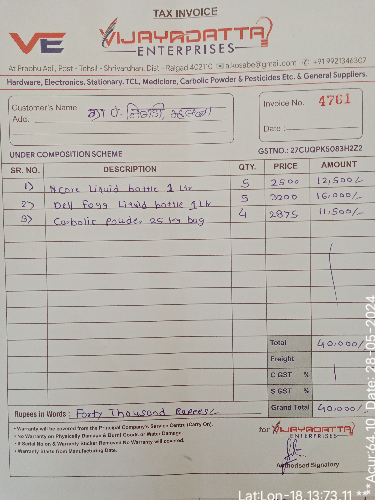 TAX INVOICE
VE VIJAYADATTA
ENTERPRISES
At Prabhu Aali, Post - Tehsil - Shrivardhan, Dist - Raigad 402110 a.kosabe@gmail.com +919921346307
Hardware, Electronics, Stationary, TCL, Mediclore, Carbolic Powder & Pesticides Etc. & General Suppliers.
Customer's Name ग्रा. पं.
Add.
Invoice No. 4761
Date :
UNDER COMPOSITION SCHEME GSTNO.: 27CUQPK5083H2Z2
SR. NO. DESCRIPTION QTY. PRICE AMOUNT
1) Liquid bottle 1 Ltr 5 2500 12,500/-
2) Fogg Liquid bottle 1 Ltr 5 3200 16,000/-
3) Carbolic powder 25 kg bag 4 2875 11,500/-
Total 40,000/-
Freight
C GST %
S GST %
Rupees in Words : Forty Thousand Rupees/- Grand Total 40,000/-
• Warranty will be covered from the Principal Company's Service Centre (Carry On).
• No Warranty on Physically Damage & Burnt Goods or Water Damage.
• If Serial No on & Warranty Sticker Removed No Warranty will covered.
• Warranty starts from Manufacturing Date.
for VIJAYADATTA
ENTERPRISES
Authorised Signatory
Lat:Lon-18.13:73.11 *** Acur:64.10 *Date: 28-05-2024